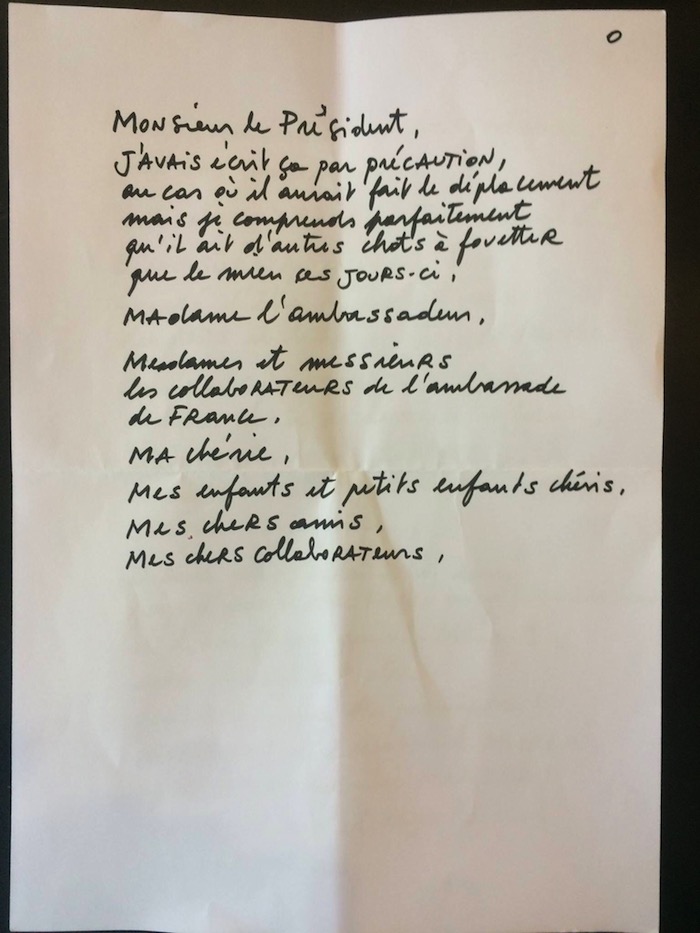 0
Monsieur le Président,
J'avais écrit ça par précaution,
au cas où il aurait fait le déplacement
mais je comprends parfaitement
qu'il ait d'autres chats à fouetter
que le mien ces jours-ci,
Madame l'ambassadeur,
Mesdames et messieurs
les collaborateurs de l'ambassade
de France,
Ma chérie,
Mes enfants et petits enfants chéris,
Mes chers amis,
Mes chers collaborateurs,